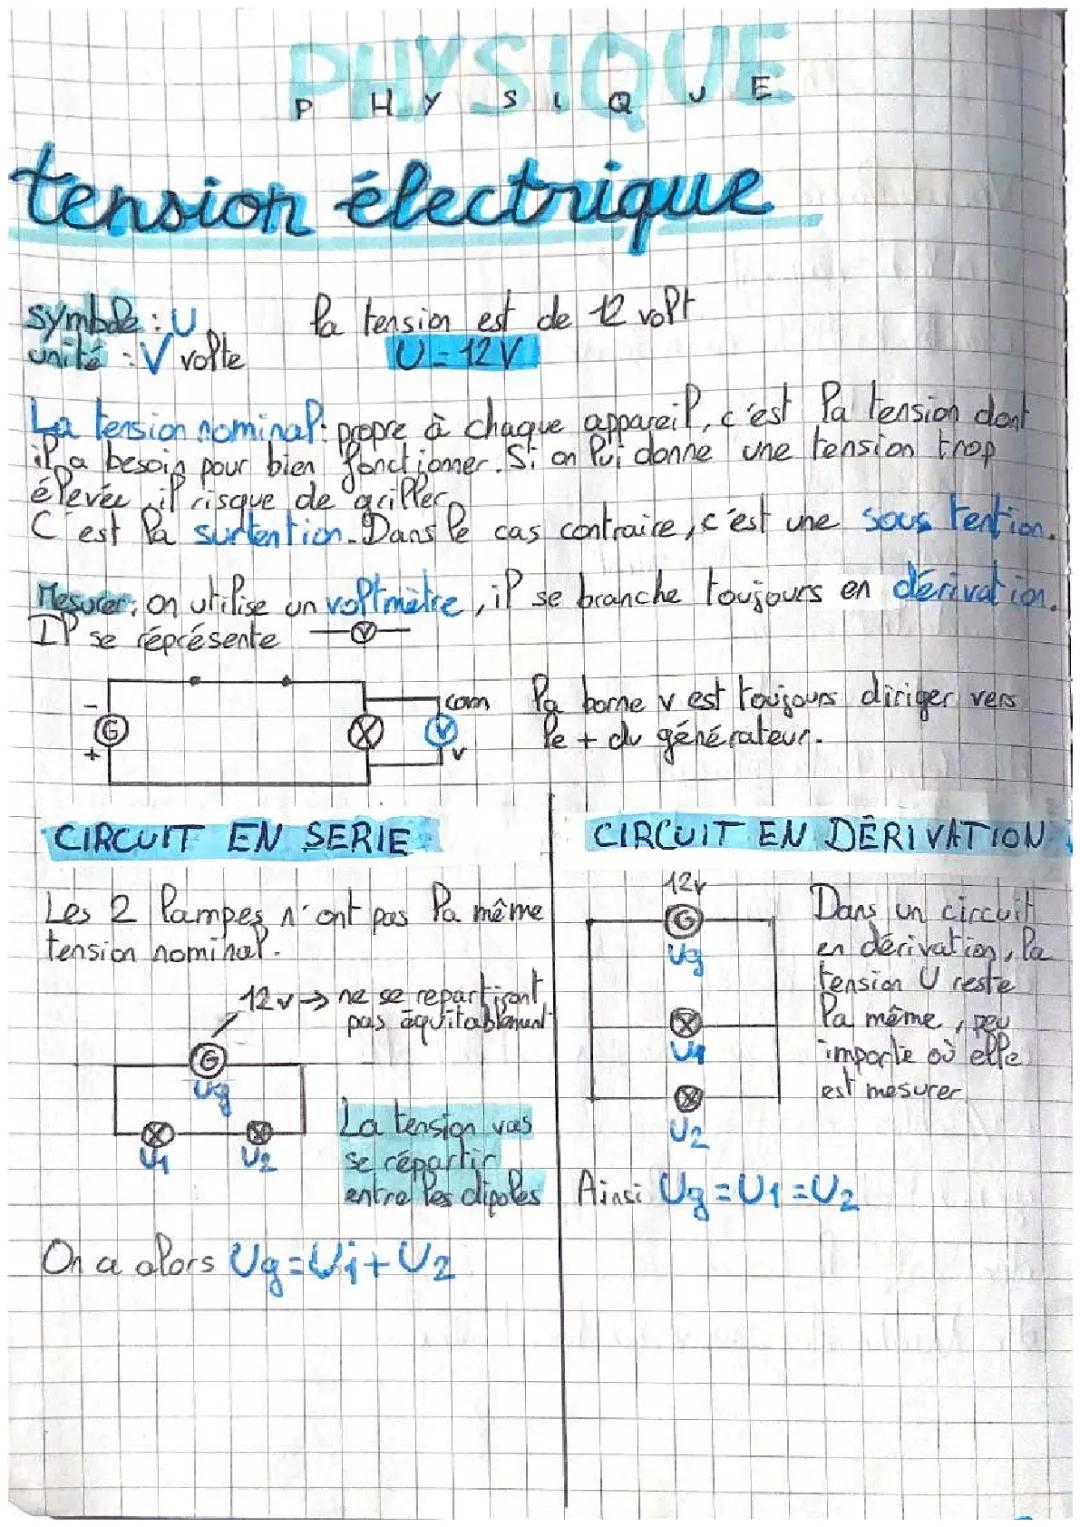 PHYSIQUE
P H Y S I Q U E
tension électrique
symbole : U
la tension est de 12 volt
unité : V volte
U = 12 V
La tension nominal : propre à chaque appareil, c'est la tension dont
il a besoin pour bien fonctionner. Si on lui donne une tension trop
élevée il risque de griller.
C'est la surtention. Dans le cas contraire, c'est une sous tention.
Mesurer : on utilise un voltmètre, il se branche toujours en dérivation.
Il se représente V
- G +
com V v
la borne v est toujours diriger vers
le + du générateur.
CIRCUIT EN SERIE
Les 2 lampes n'ont pas la même
tension nominal.
12v → ne se repartiront
pas äquitablement
G
Ug
U1 U2
La tension vas
se répartir
entre les dipoles
On a alors Ug = U1 + U2
CIRCUIT EN DÉRIVATION
12v
G
Ug
U1
U2
Dans un circuit
en dérivation, la
tension U reste
la même, peu
importe où elle
est mesurer
Ainsi Ug = U1 = U2